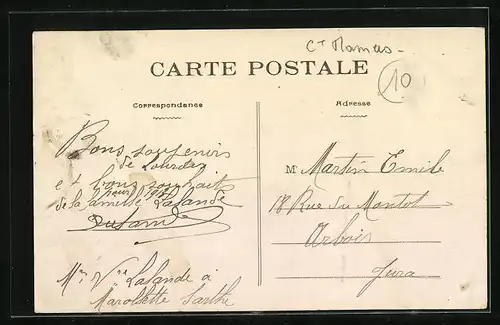 Ct Mamers
CARTE POSTALE
10
Correspondance
Adresse
Bons souvenirs
de Lourdes
et bons souhait
pour
de la famille Lalande
Mr Martin Emile
18 Rue du Montot
Arbois
Jura
Lalande à
Marollette Sarthe